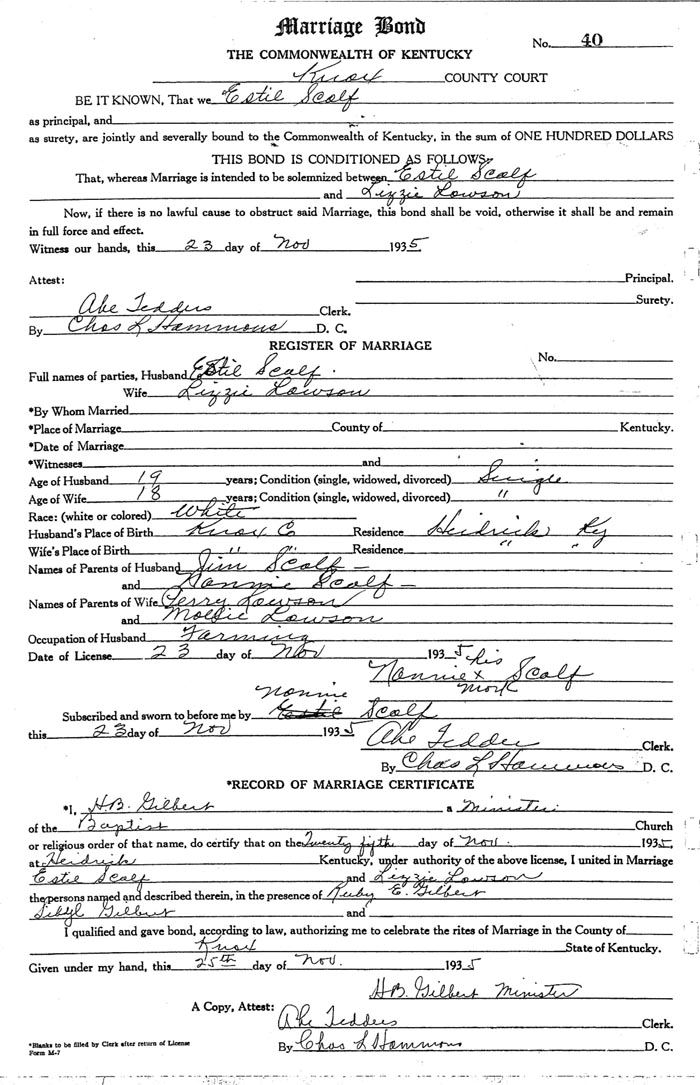 Marriage Bond
No. 40
THE COMMONWEALTH OF KENTUCKY
Knox COUNTY COURT
BE IT KNOWN, That we Estil Scalf
as principal, and
as surety, are jointly and severally bound to the Commonwealth of Kentucky, in the sum of ONE HUNDRED DOLLARS
THIS BOND IS CONDITIONED AS FOLLOWS:
That, whereas Marriage is intended to be solemnized between Estil Scalf
and Lizzie Lowson
Now, if there is no lawful cause to obstruct said Marriage, this bond shall be void, otherwise it shall be and remain
in full force and effect.
Witness our hands, this 23 day of Nov 1935
Attest: Principal.
Surety.
Abe Tedders Clerk.
By Chas L Hammons D. C.
REGISTER OF MARRIAGE
No.
Full names of parties, Husband Estil Scalf
Wife Lizzie Lowson
*By Whom Married
*Place of Marriage County of Kentucky.
*Date of Marriage
*Witnesses and
Age of Husband 19 years; Condition (single, widowed, divorced) Single
Age of Wife 18 years; Condition (single, widowed, divorced) "
Race: (white or colored) White
Husband's Place of Birth Knox C Residence Heidrick Ky
Wife's Place of Birth " " Residence " " "
Names of Parents of Husband Jim Scalf
and Nannie Scalf
Names of Parents of Wife Terry Lowson
and Mollie Lowson
Occupation of Husband Farming
Date of License 23 day of Nov 1935
his
Nannie x Scalf
mark
Nannie
Subscribed and sworn to before me by Estil Scalf
this 23 day of Nov 1935
Abe Tedders Clerk.
By Chas L Hammons D. C.
*RECORD OF MARRIAGE CERTIFICATE
*I, H.B. Gilbert a Minister
of the Baptist Church
or religious order of that name, do certify that on the Twenty fifth day of Nov. 1935
at Heidrick Kentucky, under authority of the above license, I united in Marriage
Estil Scalf and Lizzie Lowson
the persons named and described therein, in the presence of Ruby E. Gilbert
Sibyl Gilbert and
I qualified and gave bond, according to law, authorizing me to celebrate the rites of Marriage in the County of
Knox State of Kentucky.
Given under my hand, this 25th day of Nov. 1935
H.B. Gilbert Minister
A Copy, Attest: Abe Tedders Clerk.
*Blanks to be filed by Clerk after return of License
Form M-7
By Chas L Hammons D. C.